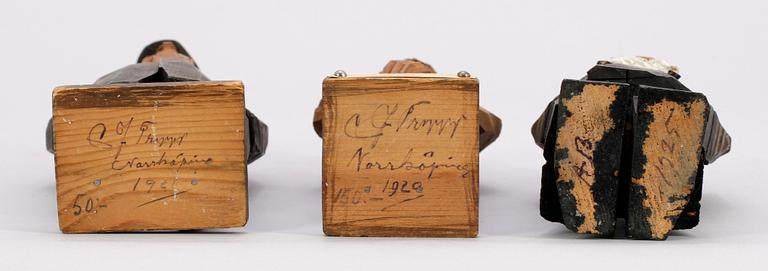 C J Trygg
Norrköping
1928
50:-
C J Trygg
Norrköping
150:- 1928
1925